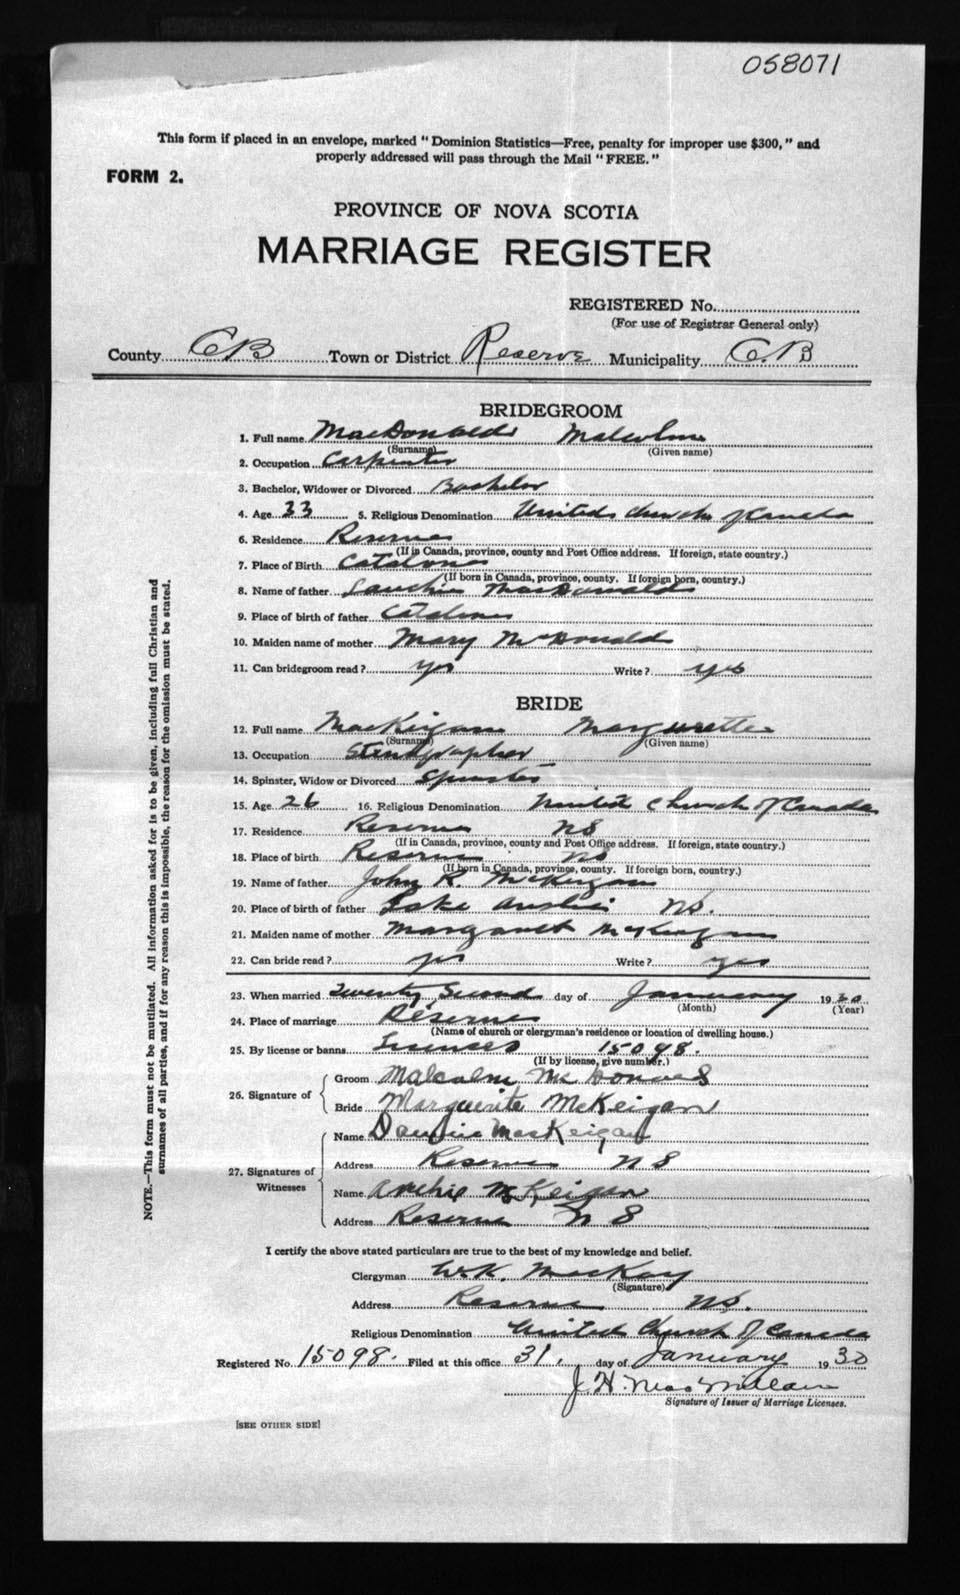 058071
This form if placed in an envelope, marked "Dominion Statistics—Free, penalty for improper use $300," and
properly addressed will pass through the Mail "FREE."
FORM 2.
PROVINCE OF NOVA SCOTIA
MARRIAGE REGISTER
REGISTERED No.
(For use of Registrar General only)
County C B Town or District Reserve Municipality C. B
BRIDEGROOM
1. Full name MacDonald Malcolm
(Surname) (Given name)
2. Occupation Carpenter
3. Bachelor, Widower or Divorced Bachelor
4. Age 33 5. Religious Denomination United Church of Canada
6. Residence Reserve
(If in Canada, province, county and Post Office address. If foreign, state country.)
7. Place of Birth Catalone
(If born in Canada, province, county. If foreign born, country.)
8. Name of father Lauchie MacDonald
9. Place of birth of father Catalone
10. Maiden name of mother Mary McDonald
11. Can bridegroom read? yes Write? yes
BRIDE
12. Full name MacKeigan Margurette
(Surname) (Given name)
13. Occupation Stenographer
14. Spinster, Widow or Divorced Spinster
15. Age 26 16. Religious Denomination United Church of Canada
17. Residence Reserve NS
(If in Canada, province, county and Post Office address. If foreign, state country.)
18. Place of birth Reserve NS
(If born in Canada, province, county. If foreign born, country.)
19. Name of father John R. McKeigan
20. Place of birth of father Lake NS.
21. Maiden name of mother Margaret McKeigan
22. Can bride read? yes Write? yes
23. When married Twenty Second day of January 1930
(Month) (Year)
24. Place of marriage Reserve
(Name of church or clergyman's residence or location of dwelling house.)
25. By license or banns License 15098.
(If by license, give number.)
26. Signature of
Groom Malcolm McDonald
Bride Marguerite McKeigan
27. Signatures of Witnesses
Name MacKeigan
Address Reserve NS
Name Archie McKeigan
Address Reserve N S
I certify the above stated particulars are true to the best of my knowledge and belief.
Clergyman W.K. MacKay
(Signature)
Address Reserve NS.
Religious Denomination United Church of Canada
Registered No. 15098. Filed at this office 31, day of January 1930
J. H. MacMillan
Signature of Issuer of Marriage Licenses.
[SEE OTHER SIDE]
NOTE.—This form must not be mutilated. All information asked for is to be given, including full Christian and
surnames of all parties, and if for any reason this is impossible, the reason for the omission must be stated.